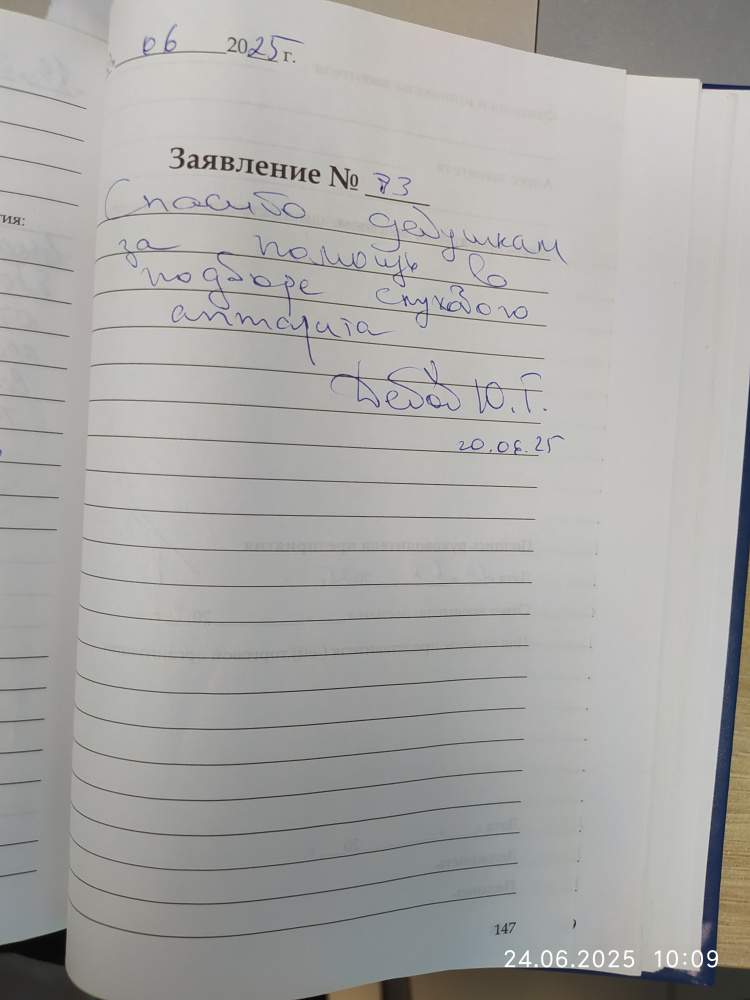 06 2025 г.
Заявление № 73
Спасибо девушкам
за помощь во
подборе слухового
аппарата
Ю.Г.
20.06.25
тия:
147
24.06.2025 10:09